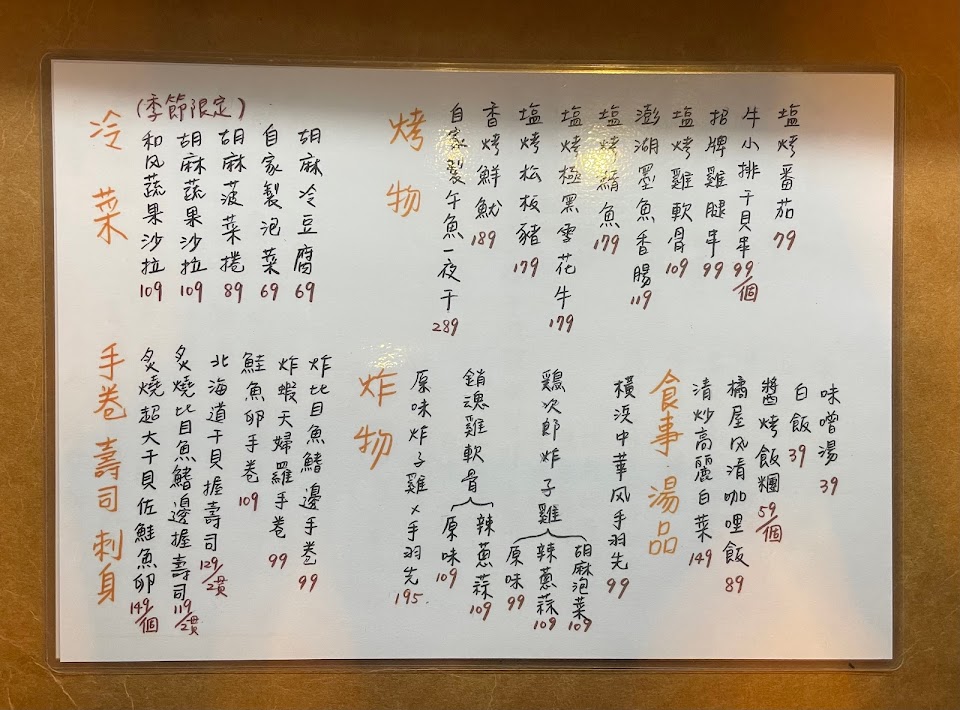 冷菜
(季節限定)
和风蔬果沙拉 109
胡麻蔬果沙拉 109
胡麻菠菜捲 89
自家製泡菜 69
胡麻冷豆腐 69
烤物
自家製午魚一夜干 289
香烤鮮魷 189
塩烤松板豬 179
塩烤極黑雪花牛 179
塩烤鯖魚 179
澎湖墨魚香腸 119
塩烤雞軟骨 109
招牌雞腿串 99
牛小排干貝串 99/個
塩烤番茄 79
手卷 壽司 刺身
炙燒超大干貝佐鮭魚卵 149/個
炙燒比目魚鰭邊握壽司 119/2貫
北海道干貝握壽司 129/2貫
鮭魚卵手卷 109
炸蝦天婦羅手卷 99
炸比目魚鰭邊手卷 99
炸物
原味炸子雞×手羽先 195.
銷魂雞軟骨
原味 109
辣蔥蒜 109
鶏次郎炸子雞
原味 99
辣蔥蒜 109
胡麻泡菜 109
橫浜中華风手羽先 99
食事 湯品
清炒高麗白菜 149
橘屋风清咖哩飯 89
醬烤飯糰 59/個
白飯 39
味噌湯 39